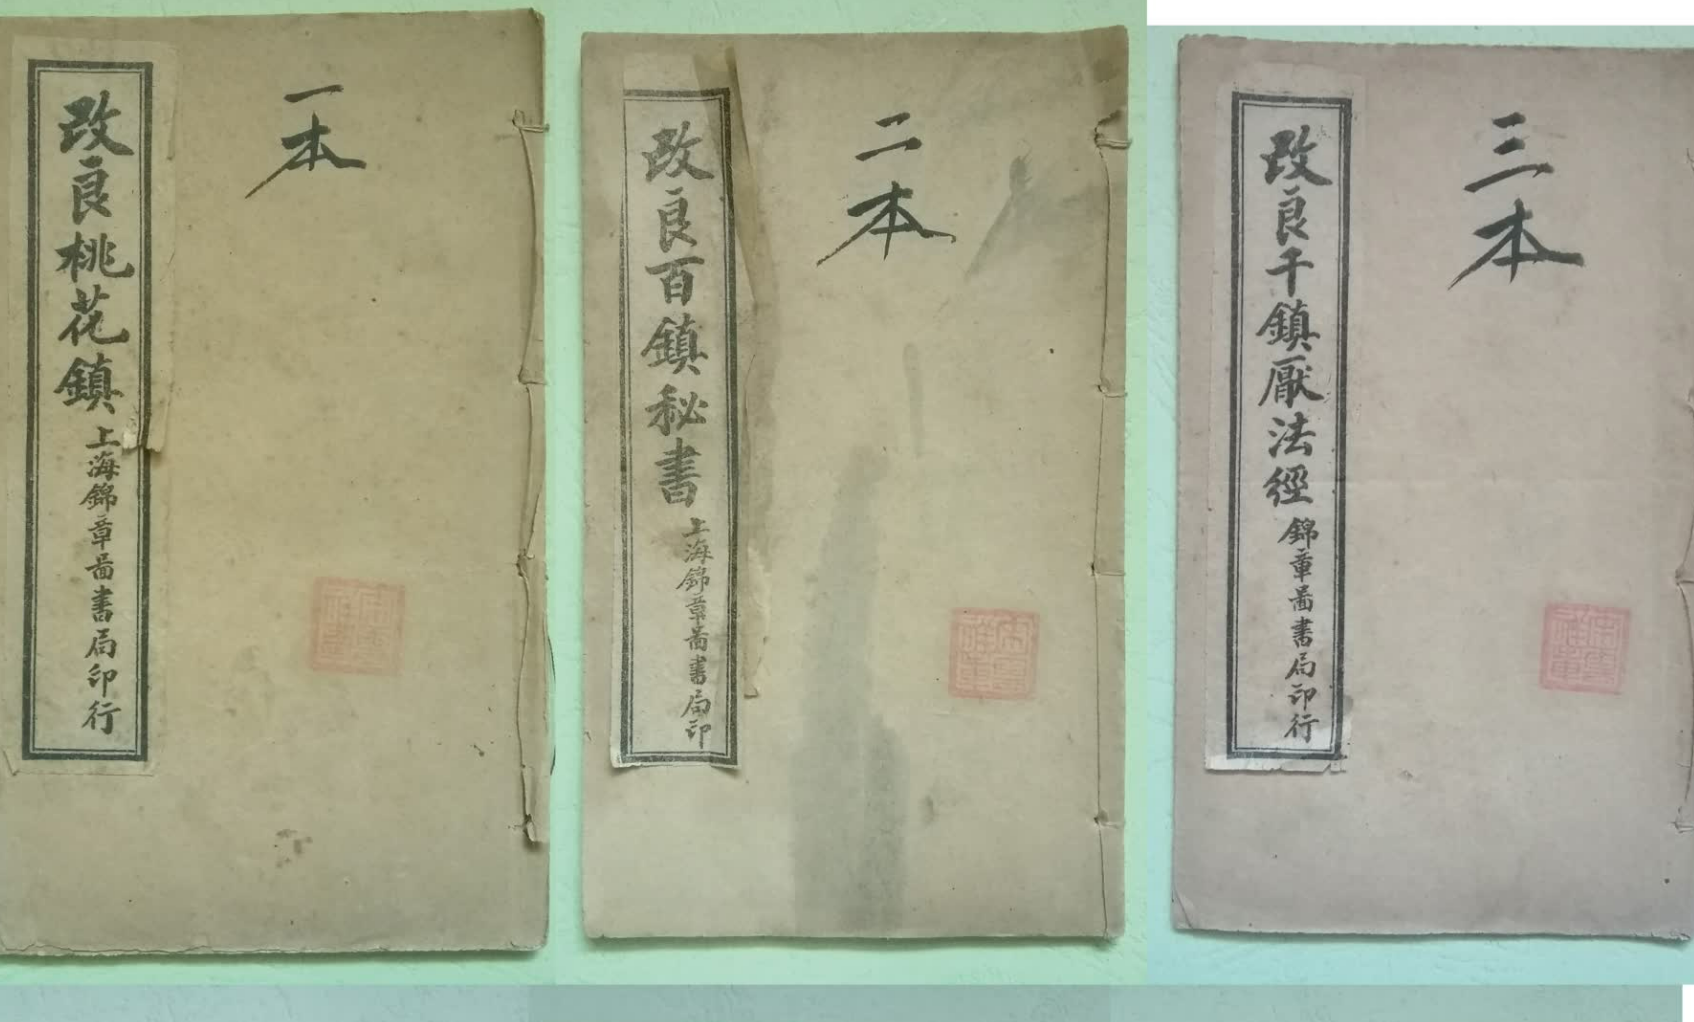 改良桃花鎮 上海錦章啚書局印行
一本
改良百鎮秘書 上海錦章啚書局印
二本
改良千鎮厭法經 錦章啚書局印行
三本